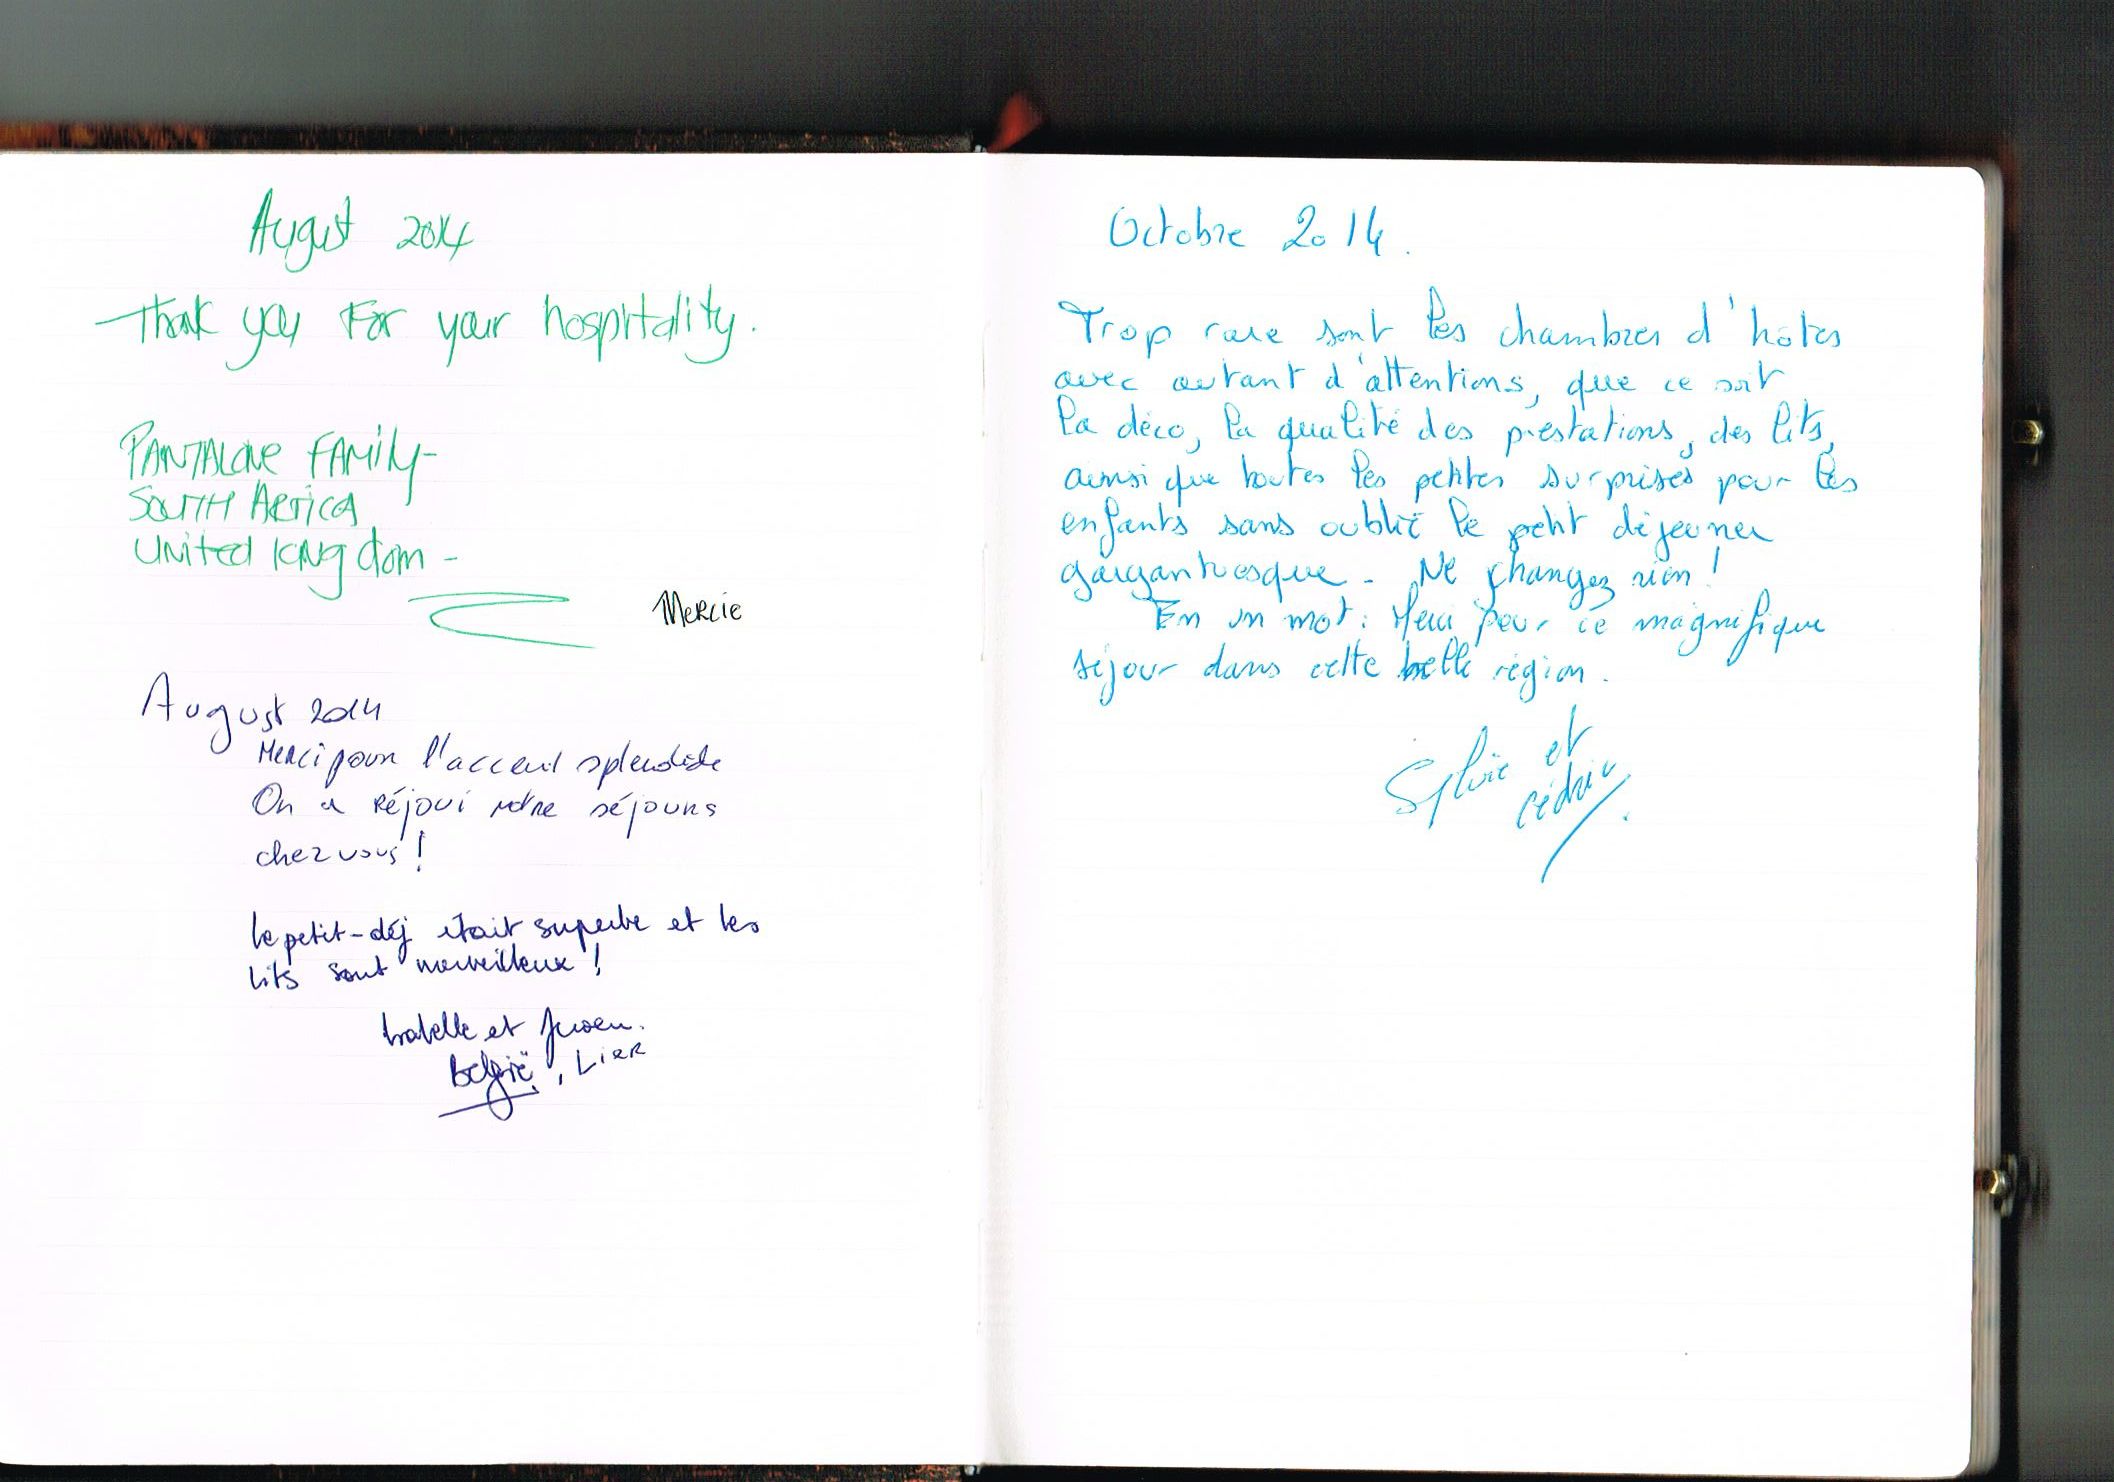 August 2014
Thank you For your hospitality.
PANTALONE FAMILY-
SOUTH AFRICA
UNITED KINGdom -
MERCIE
August 2014
Merci pour l'acceuil splendide
On a réjoui notre séjours
chez vous !
le petit-déj était superbe et les
lits sont merveilleux !
Isabelle et Jeroen.
België, LIER
Octobre 2014.
Trop rare sont les chambres d'hôtes
avec autant d'attentions, que ce soit
la déco, la qualité des prestations, des lits,
ainsi que toutes les petites surprises pour les
enfants sans oublié le petit déjeuner
gargantuesque - Ne changez rien !
En un mot : Merci pour ce magnifique
séjour dans cette belle région.
Sylvie et
Cédric